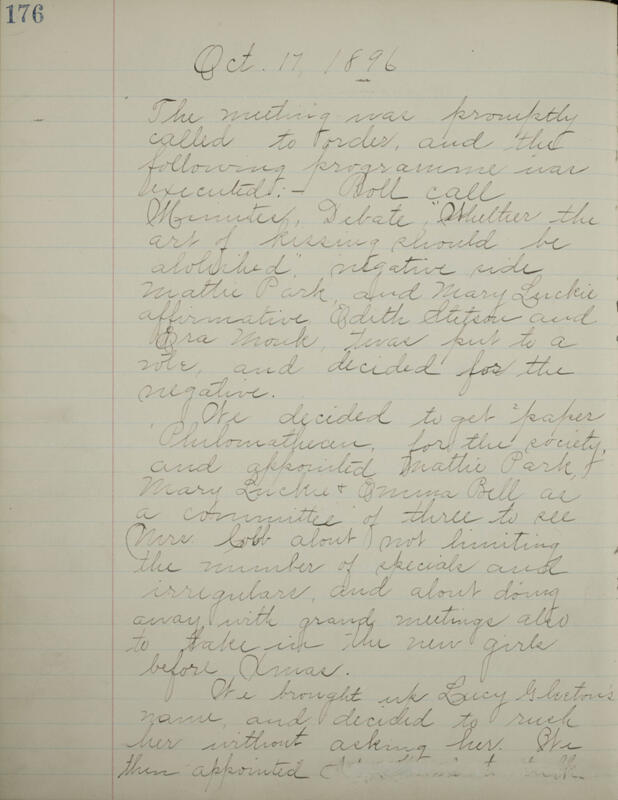 176
Oct. 17, 1896
The meeting was promptly
called to order, and the
following programme was
executed:- Roll call
Minutes, Debate, "Whether the
art of kissing should be
abolished", negative side
Mattie Park, and Mary Luckie
affirmative, Edith Stetson and
Ora Monk, twas put to a
vote, and decided for the
negative.
We decided to get paper
Philomathean, for the society,
and appointed Mattie Park, +
Mary Luckie + Emma Bell as
a committee of three to see
Mrs. Cobb about not limiting
the number of specials and
irregulars, and about doing
away with grand meetings also
to take in the new girls
before Xmas.
We brought up Lucy
name, and decided to rush
her without asking her. We
then appointed